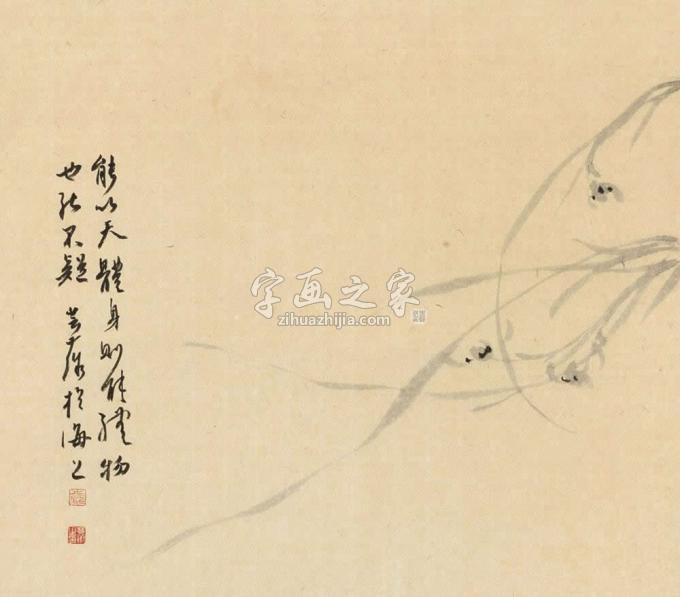 能以天體身則能體物
也不疑 於海上
字画之家
zihuazhijia.com